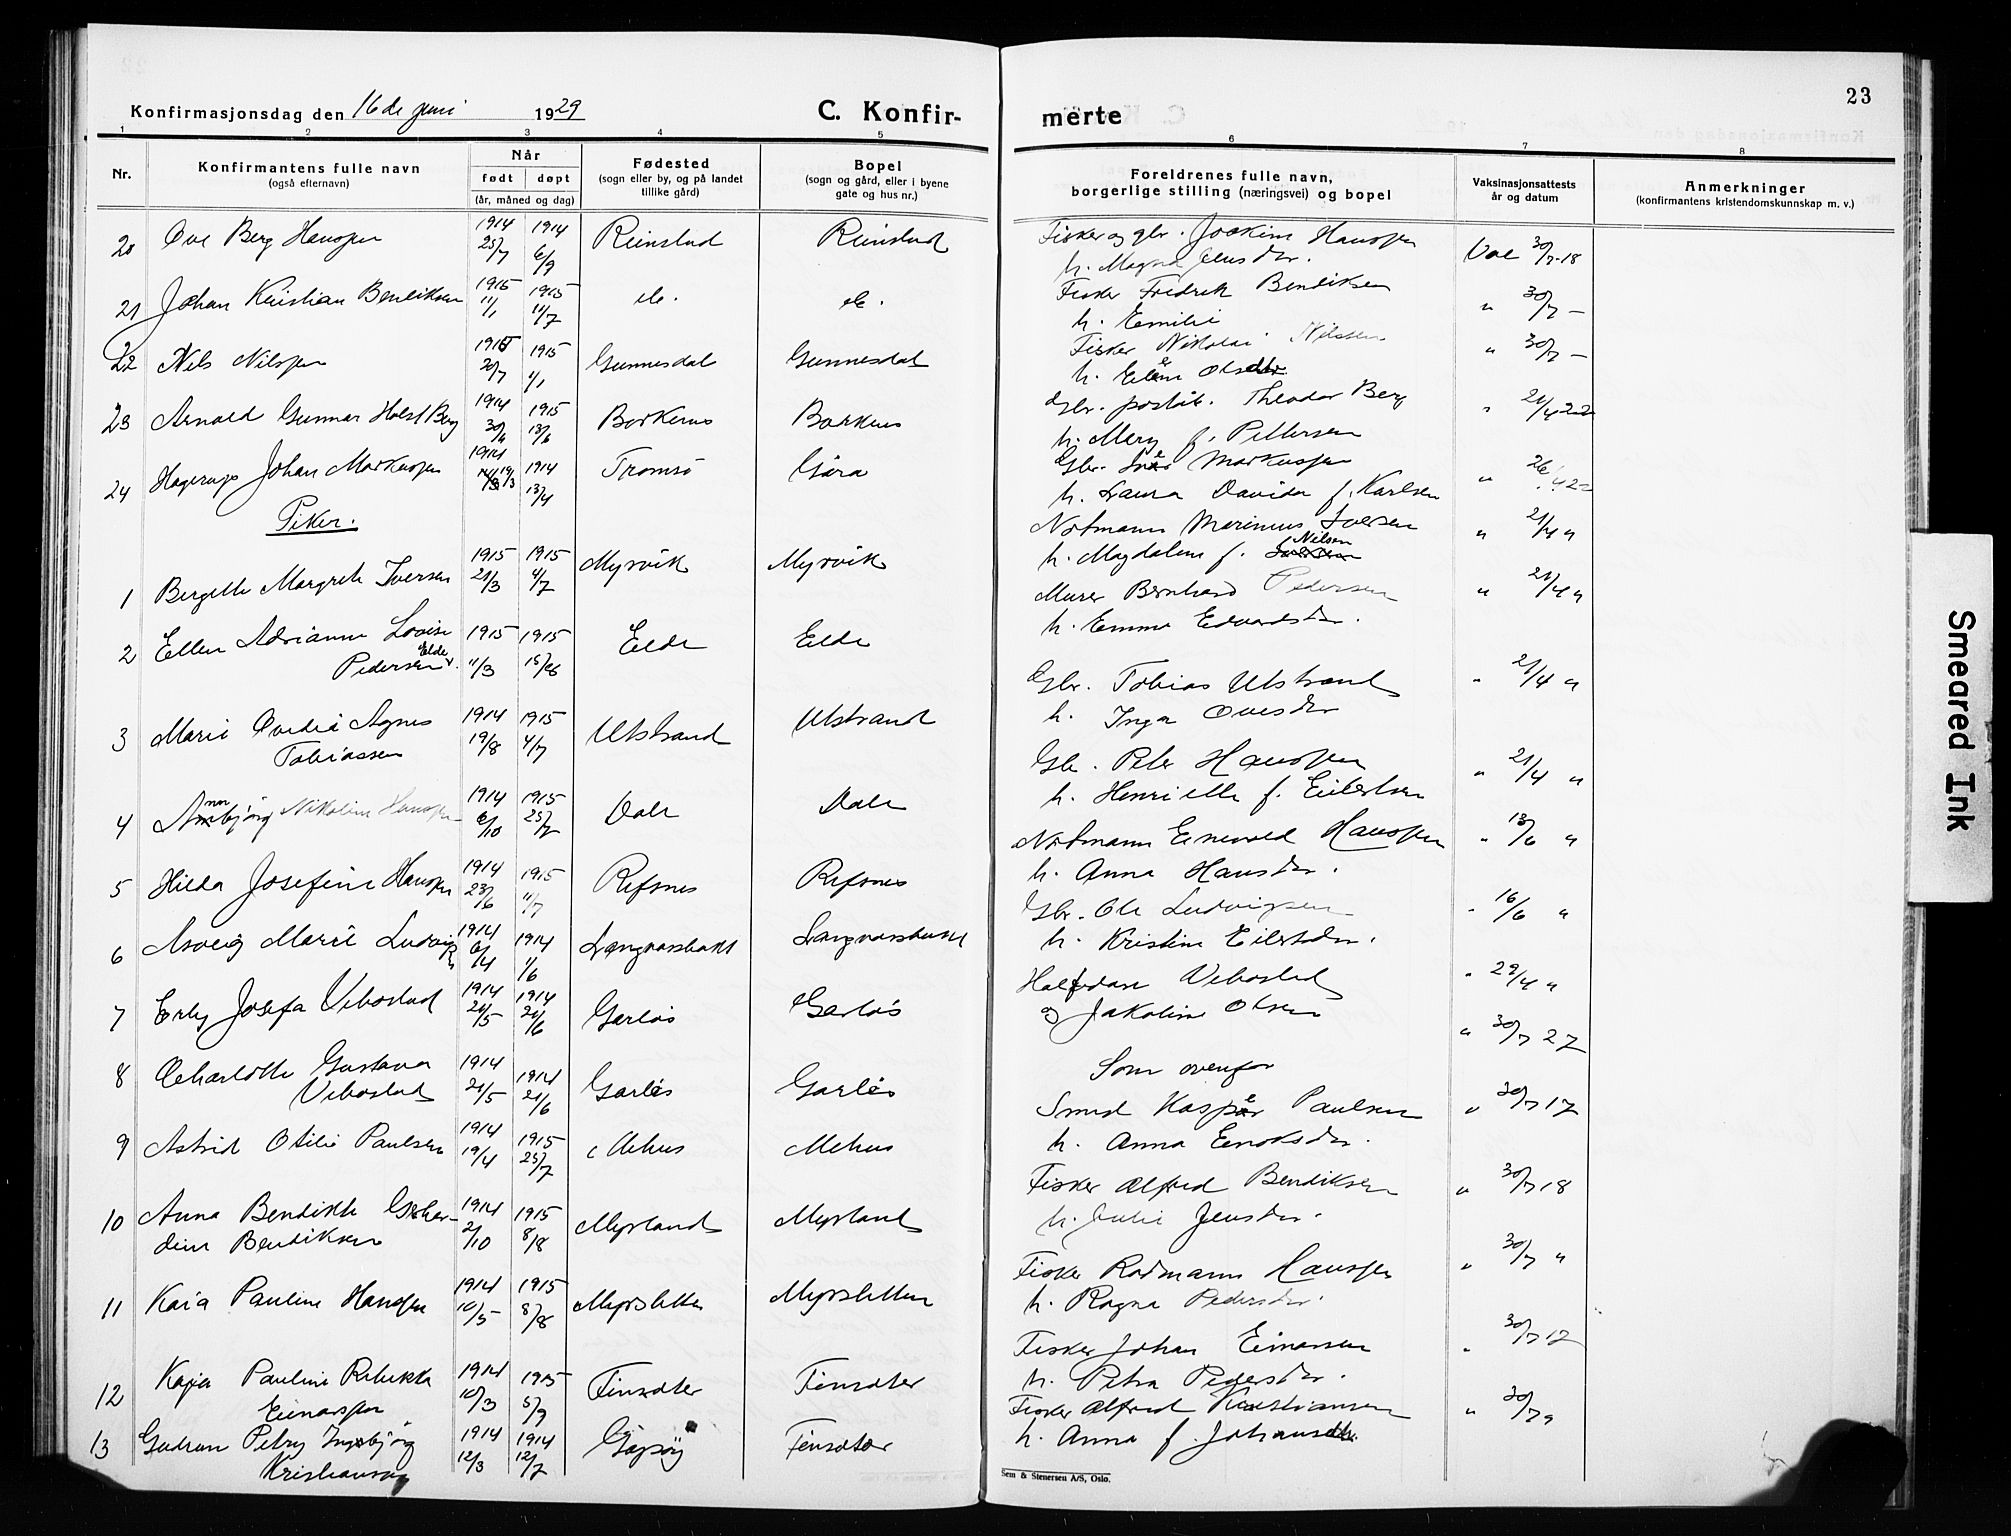 23
Konfirmasjonsdag den 16de juni 1929
C. Konfir-
merte
1 2 3 4 5 6 7 8
Nr.
Konfirmantens fulle navn
(også efternavn)
Når
født døpt
(år, måned og dag)
Fødested
(sogn eller by, og på landet
tillike gård)
Bopel
(sogn og gård, eller i byene
gate og hus nr.)
Foreldrenes fulle navn,
borgerlige stilling (næringsvei) og bopel
Vaksinasjonsattests
år og datum
Anmerkninger
(konfirmantens kristendomskunnskap m. v.)
20 Ove Berg Hanssen 1914 25/7 1914 6/9 Reinstad Reinstad
Fisker og gbr. Joakim Hanssen
h. Magna Jensdtr.
Val 30/7-18
21 Johan Kristian Bendiksen 1915 11/1 1915 11/7 do. do.
Fisker Fredrik Bendiksen
h. Emilie
" 30/7 –
22 Nils Nilssen 1915 Gunnesdal Gunnesdal
Fisker Nikolai Nilssen
" 30/7 –
23 Arnold Gunnar Holst Berg 1914 1915 13/6 Borkenes Borkenes
Gbr. Theodor Berg
h. Mery f. Pettersen
" 21/4 22
24 Hagerup Johan Markussen 1914 1914 13/4 Tromsø Gåra
Gbr. Markussen
h. Laura Davida f. Karlsen
Piker.
1 Bergette Margrete Iversen 1915 21/3 1915 4/7 Myrvik Myrvik
Notmann Marinius Iversen
h. Magdalene f. Nilsen
" 21/4 "
2 Ellen Adrianne Lovise
Pedersen Elde 1915 11/3 1915 Elde Elde
Murer Bernhard Pedersen
h. Emma Edvardsdtr.
" 21/4 "
3 Marie Ovedia Agnes
Tobiassen 1914 19/8 1915 4/7 Utstrand Utstrand
Gbr. Tobias Utstrand
h. Inga Ovesdtr
" 21/4 "
4 Annbjörg Nikoline Hanssen 1914 6/10 1915 25/7 Dale Dale
Gbr. Peter Hanssen
h. Henriette f. Eilertsen
" 21/4 "
5 Hilda Josefine Hanssen 1914 23/6 1915 11/7 Refsnes Refsnes
Notmann Hanssen
h. Anna Hansdtr.
" 13/6 "
6 Asveig Marie 1914 1914 1/6 Langvassbukt Langvassbukt
Gbr. Ole Ludvigsen
h. Kristine Eilertsdtr.
" 16/6 "
7 Erly Josefa Vebostad 1914 21/5 1914 21/6 Garløs Garløs
Halfdan Vebostad
og Jakobine Olsen
" 29/4 "
8 Charlotte Gustava
Vebostad 1914 21/5 1914 21/6 Garløs Garløs
Som ovenfor
" 30/7 27
9 Astrid Otilie Paulsen 1914 19/4 1915 25/7 Mehus Mehus
Smed Kasper Paulsen
h. Anna Enoksdtr.
" 30/7 17
10 Anna Bendikte Gerhar-
dine Bendiksen 1914 2/10 1915 8/8 Myrland Myrland
Fisker Alfred Bendiksen
h. Julie Jensdtr.
" 30/7 18
11 Kaia Pauline Hanssen 1914 10/5 1915 8/8 Myrsletten Myrsletten
Fisker Rodmann Hanssen
h. Ragna Pedersdtr.
" 30/7 "
12 Kaja Pauline Rebekka
Einarssen 1914 10/3 1915 5/9 Finsæter Finsæter
Fisker Johan Einarsen
h. Petra Pedersdtr.
" 30/7 17
13 Gudrun Petry Ingebjörg
Kristiansen 1914 12/3 1914 12/7 Gapøy Finsæter
Fisker Alfred Kristiansen
h. Anna f. Johansdtr.
" 30/7 "
Sem & Stenersen A/S, Oslo.
Smeared Ink